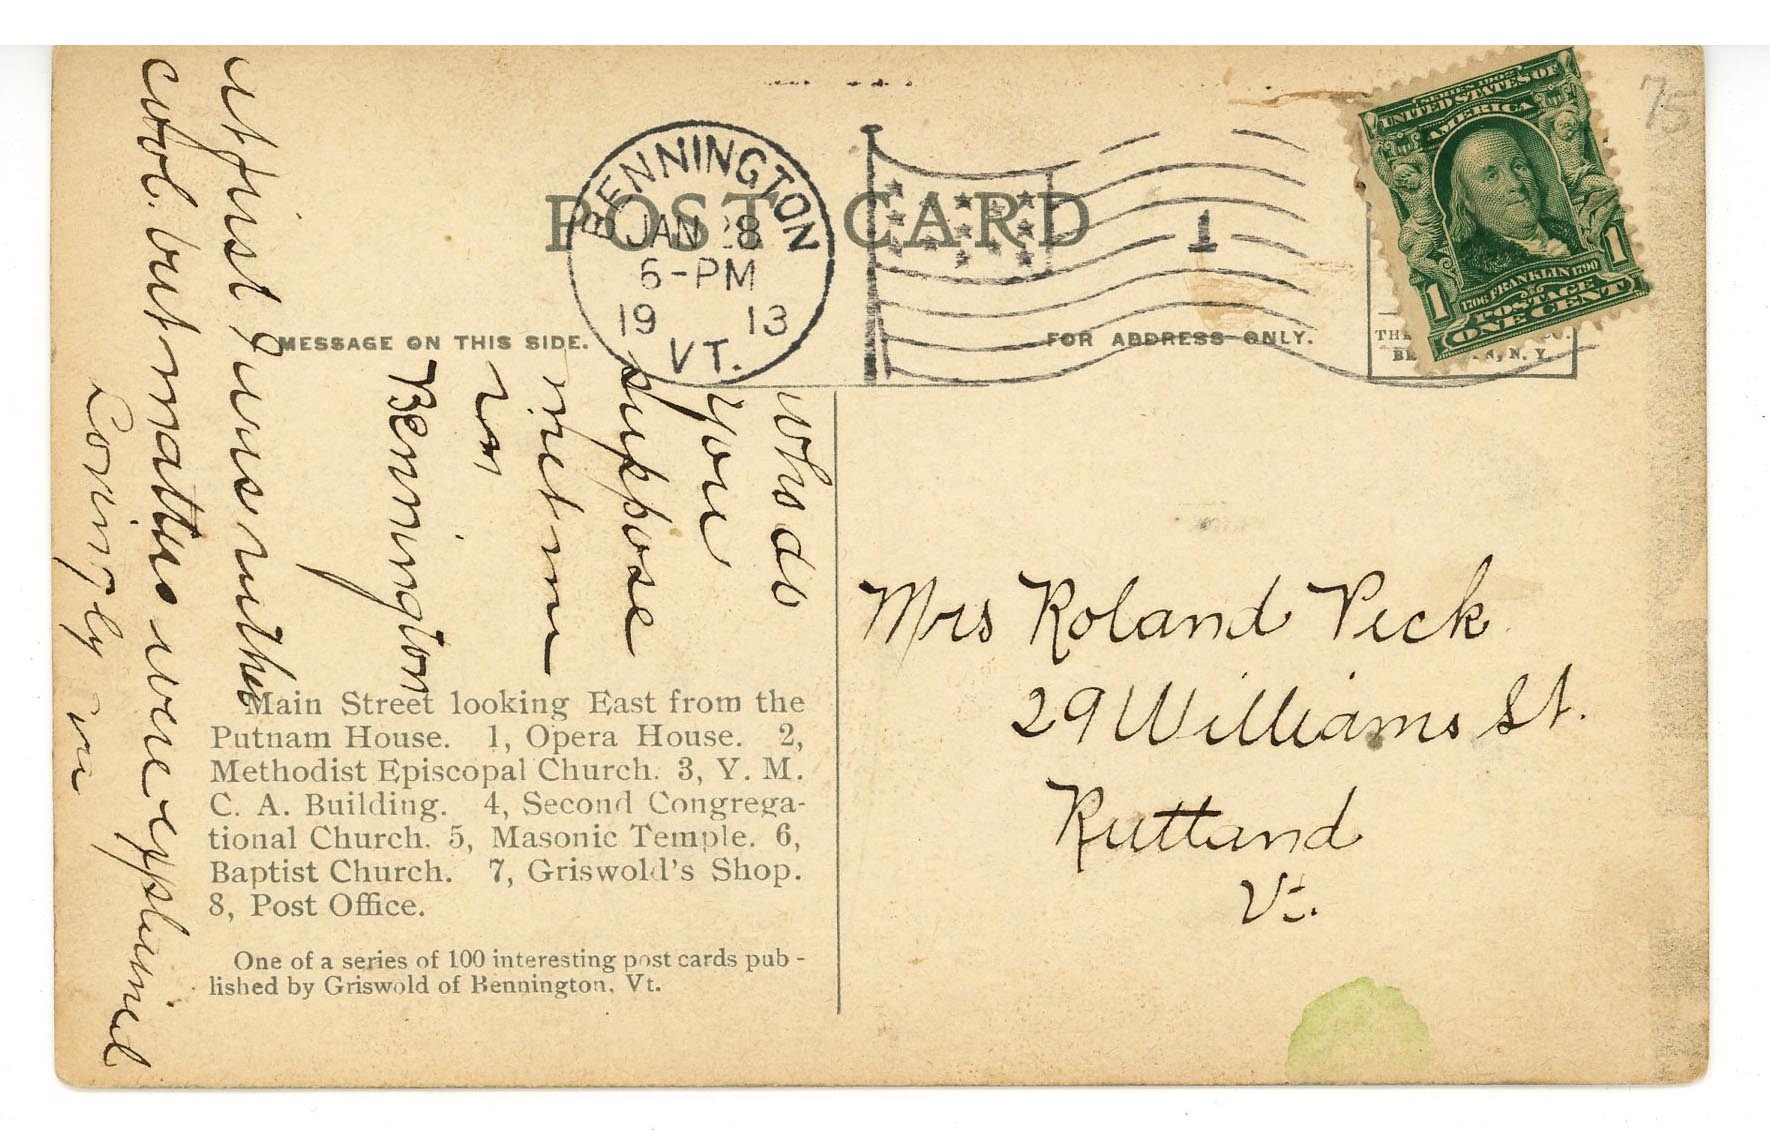 POST CARD
BENNINGTON
JAN 28
6-PM
19 13
VT.
1
SERIES 1902
UNITED STATES OF
AMERICA
1706 FRANKLIN 1790
POSTAGE
1 1
ONE CENT
75
MESSAGE ON THIS SIDE.
FOR ADDRESS ONLY.
N. Y.
Who do
you
suppose
met me
in
Bennington
at first I was rather
cool. but matters were explained
Lovingly m
Mrs Roland Peck
29 Williams St.
Rutland
Vt.
Main Street looking East from the
Putnam House. 1, Opera House. 2,
Methodist Episcopal Church. 3, Y. M.
C. A. Building. 4, Second Congrega-
tional Church. 5, Masonic Temple. 6,
Baptist Church. 7, Griswold's Shop.
8, Post Office.
One of a series of 100 interesting post cards pub-
lished by Griswold of Bennington, Vt.